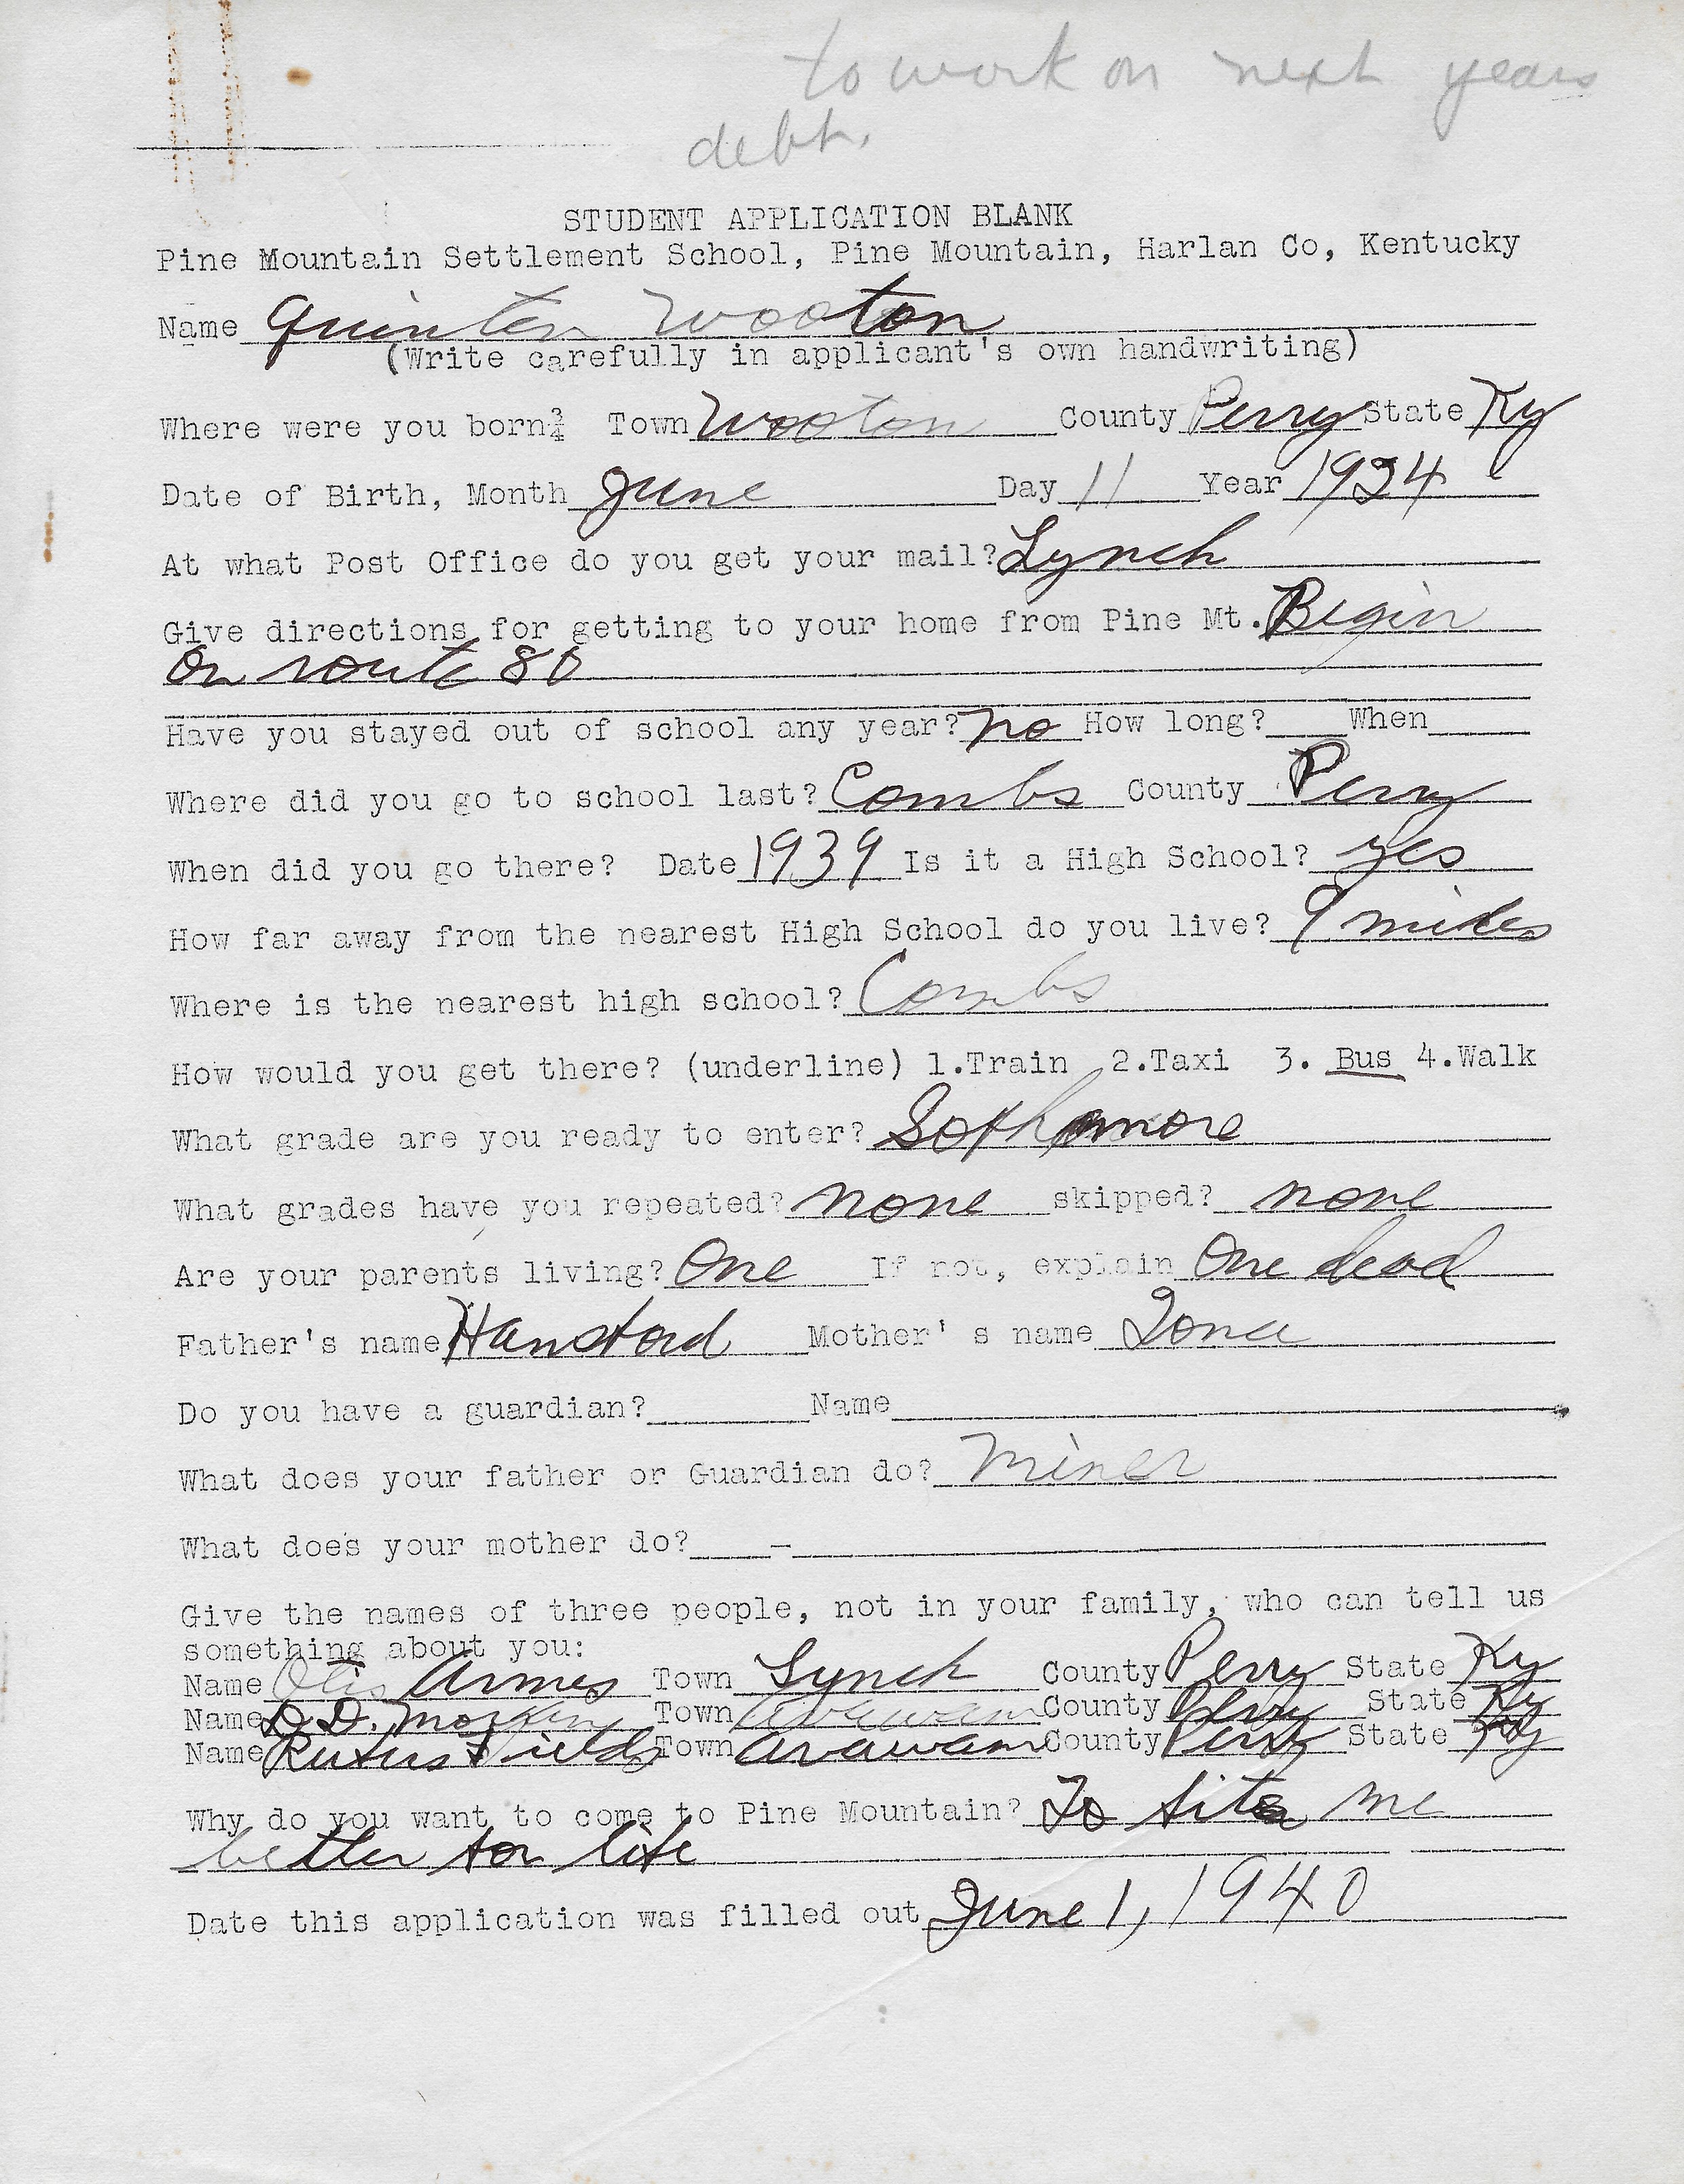 to work on next years
debt.
STUDENT APPLICATION BLANK
Pine Mountain Settlement School, Pine Mountain, Harlan Co, Kentucky
Name Quinten Wooton
(Write carefully in applicant's own handwriting)
Where were you born¾ Town Wooton County Perry State Ky
Date of Birth, Month June Day 11 Year 1924
At what Post Office do you get your mail? Lynch
Give directions for getting to your home from Pine Mt. Begin
on route 80
Have you stayed out of school any year? no How long? When
Where did you go to school last? Combs County Perry
When did you go there? Date 1939 Is it a High School? yes
How far away from the nearest High School do you live? 9 miles
Where is the nearest high school? Combs
How would you get there? (underline) 1.Train 2.Taxi 3. Bus 4.Walk
What grade are you ready to enter? Sophomore
What grades have you repeated? none skipped? none
Are your parents living? One If not, explain One dead
Father's name Hansford Mother' s name Iona
Do you have a guardian? Name
What does your father or Guardian do? Miner
What does your mother do? -
Give the names of three people, not in your family, who can tell us
something about you:
Name Otis Armes Town Lynch County Perry State Ky
Name D.D. Morgan Town Avawam County Perry State Ky
Name Rufus Fields Town Avawam County Perry State Ky
Why do you want to come to Pine Mountain? To fit me
better for life
Date this application was filled out June 1, 1940